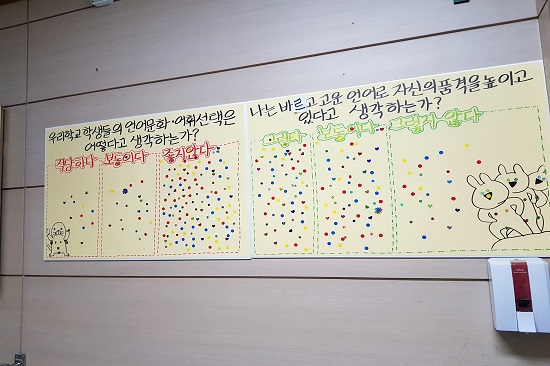 우리학교 학생들의 언어문화·어휘선택은
어떻다고 생각하는가?
적당하다 보통이다 좋지않다
나는 바르고 고운 언어로 자신의 품격을 높이고
있다고 생각하는가?
그렇다 보통이다 그렇지 않다